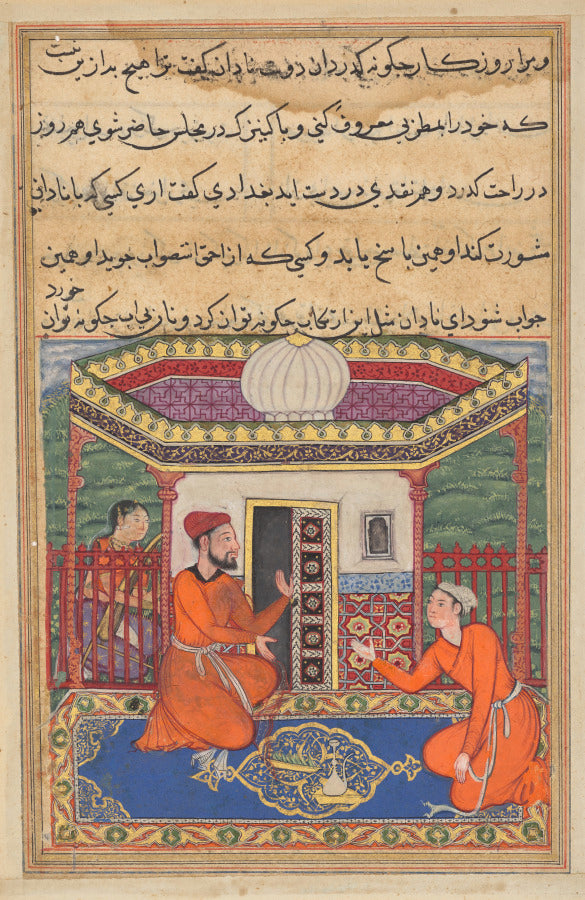 و برا روز کار چکونه کدرد ان دوست نادان کفت ترا هیچ بد ازین نیست
که خود را بمطربی معروف کنی و با کنیزک در مجلس حاضر شوی هم روز
در راحت کدرد و هم نقدی در دست اید بغدادی کفت اری کسی که با نادان
مشورت کند او همین پاسخ یابد و کسی که از احمق استصواب جوید او همین
جواب شنود ای نادان مثل این ارتکاب چکونه توان کرد و نان بی اب چکونه توان
خورد